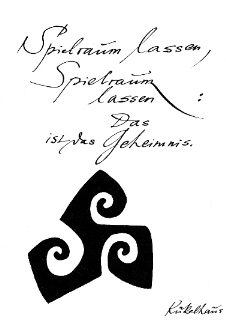 Spielraum lassen,
Spielraum
lassen :
Das
ist das Geheimnis.
Kükelhaus